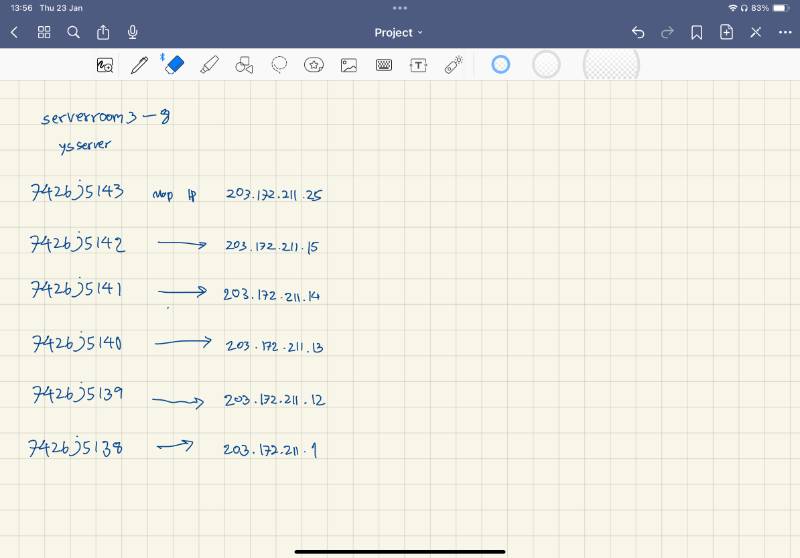 13:56 Thu 23 Jan 83%
Project
T
serverroom3 - 8
ysserver
7426j5143 map IP 203.172.211.25
7426j5142 → 203.172.211.15
7426j5141 → 203.172.211.14
7426j5140 → 203.172.211.13
7426j5139 → 203.172.211.12
7426j5138 → 203.172.211.1